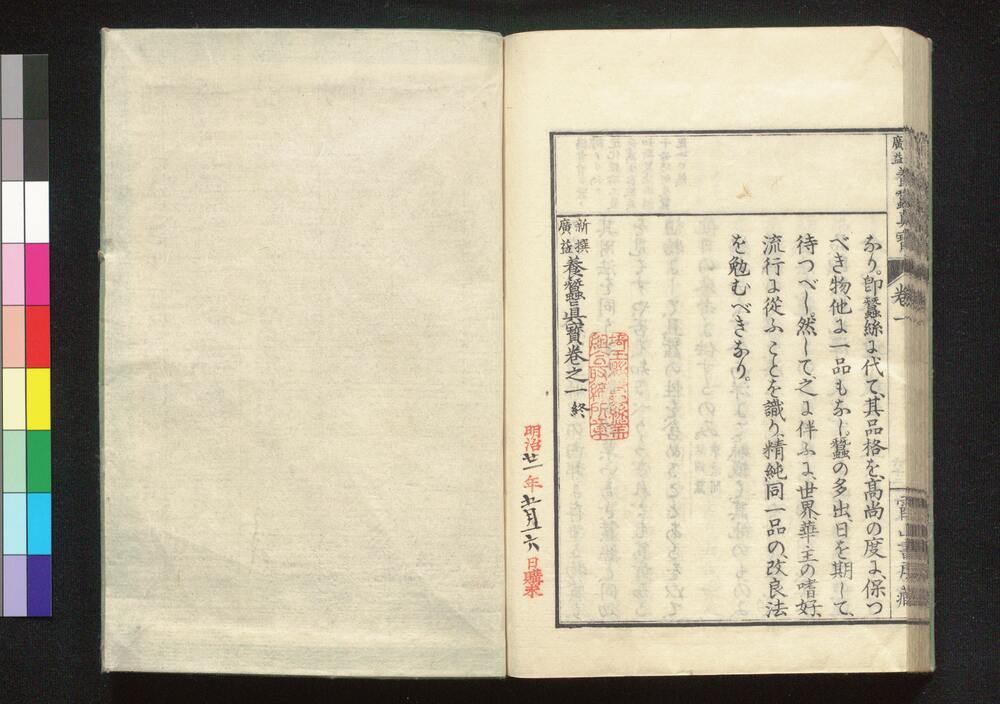 廣益
養蠶眞寶
卷一
寶山書房藏
なり。卽蠶絲に代て、其品格を、髙尚の度に、保つ
べき物、他に一品もなし。蠶の多出、日を期して、
待つべし。然して、之に伴ふに、世界、華主の嗜好、
流行に從ふことを識り、精純同一品の、改良法
を勉むべきなり。
新撰
廣益
養蠶眞寶卷之一終
明治廿一年五月一六日購求